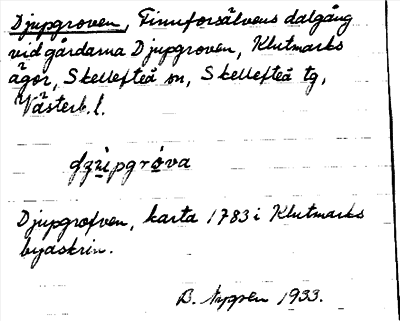 Djupgroven, Finnforsälvens dalgång
vid gårdarna Djupgroven, Klutmarks
ägor, Skellefteå sn, Skellefteå tg,
Västerb. l.
Djupgrofven, karta 1783 i Klutmarks
byaskrin.
B. 1933.